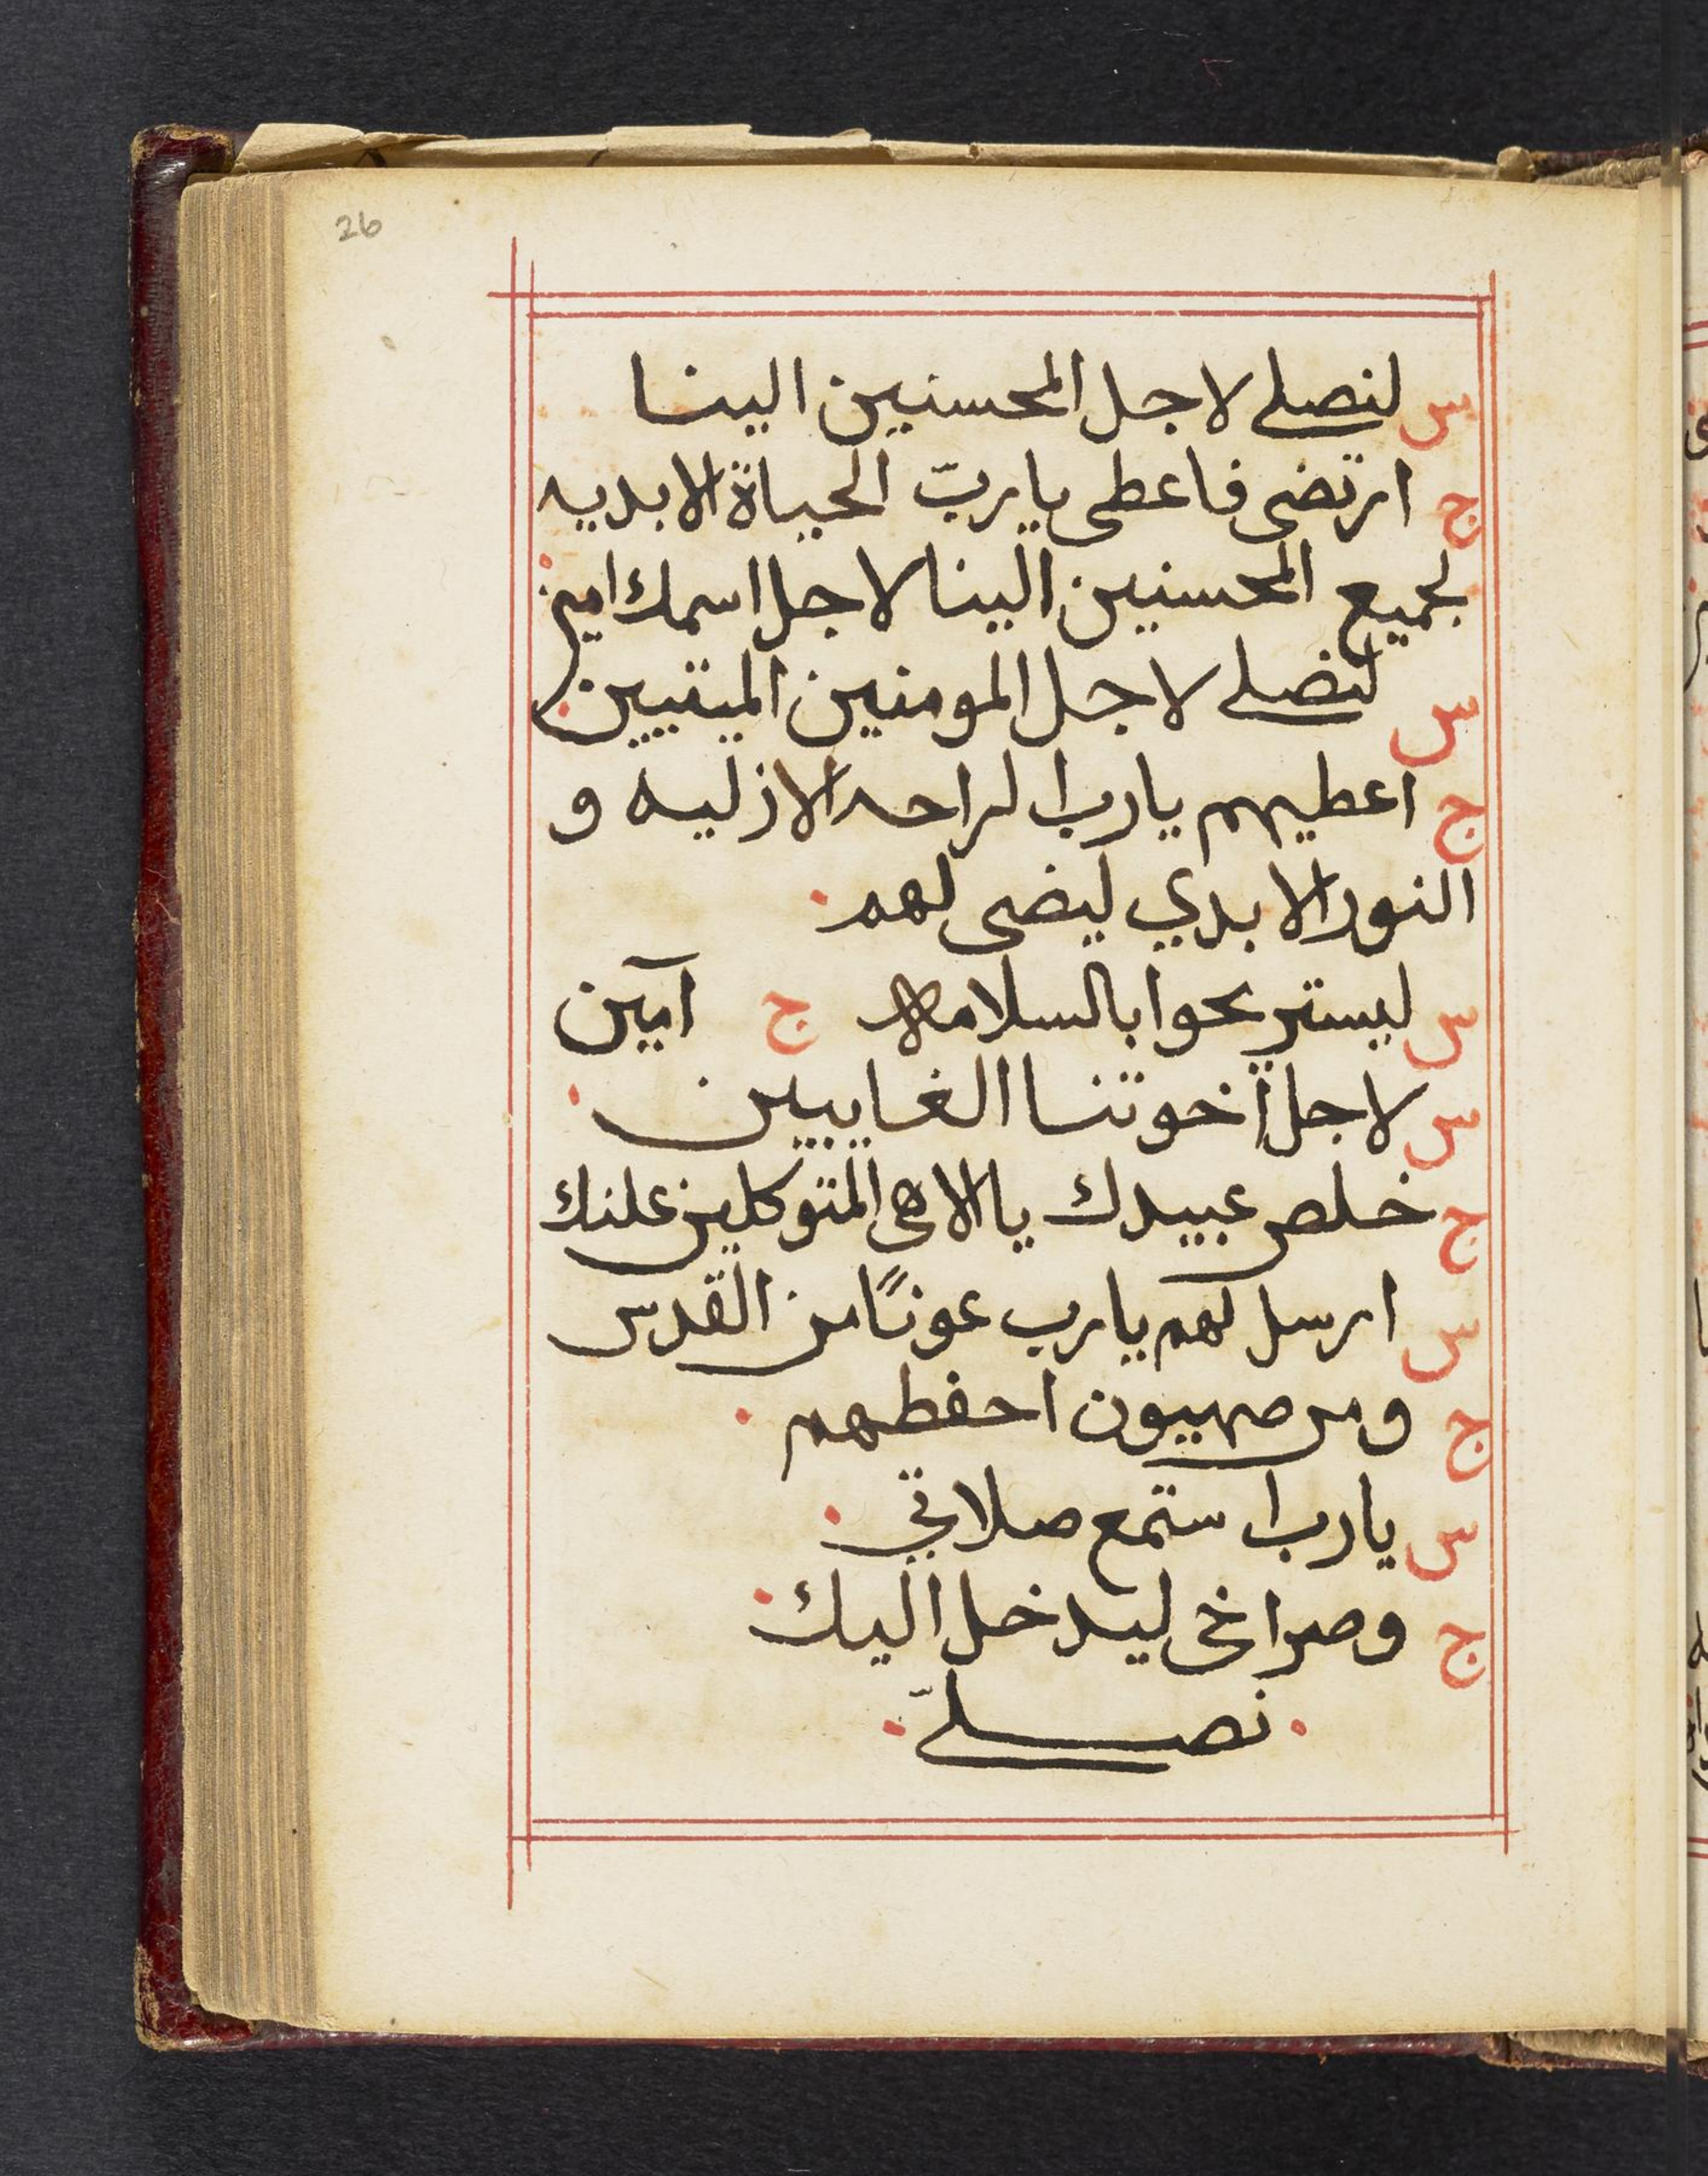 26
س لنصلي لاجل المحسنين الينا
ج ارتضي فاعطي يا ربّ الحياة الابديه
لجميع المحسنين الينا لاجل اسمك امين
س لنصلي لاجل المومنين الميتيين
ج اعطيهم يارب الراحه الازليه و
النور الابدي ليضى لهم
س ليستريحوا بالسلامه ج آمين
س لاجل اخوتنا الغايبين
ج خلص عبيدك يا الاهى المتوكلين علنك
س ارسل لهم يارب عونًا من القدس
ج ومن صهيون احفطهم
س يارب استمع صلاتي
ج وصراخى ليدخل اليك
نصلّي